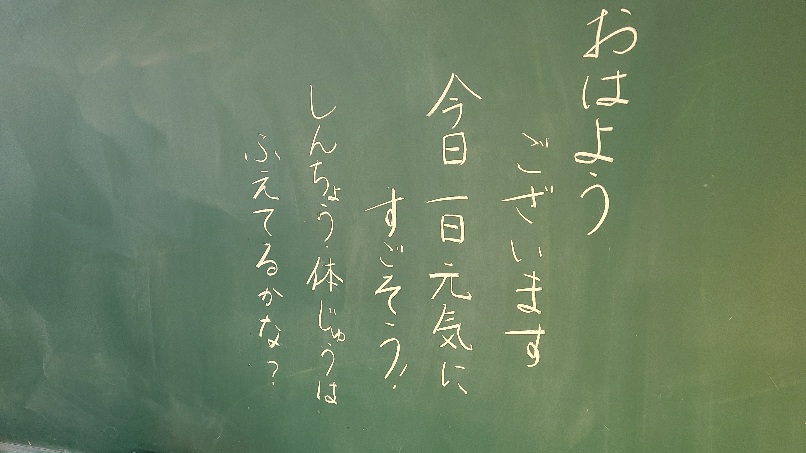 おはよう
ございます
今日一日元気に
すごそう!
しんちょう・体じゅうは
ふえてるかな?